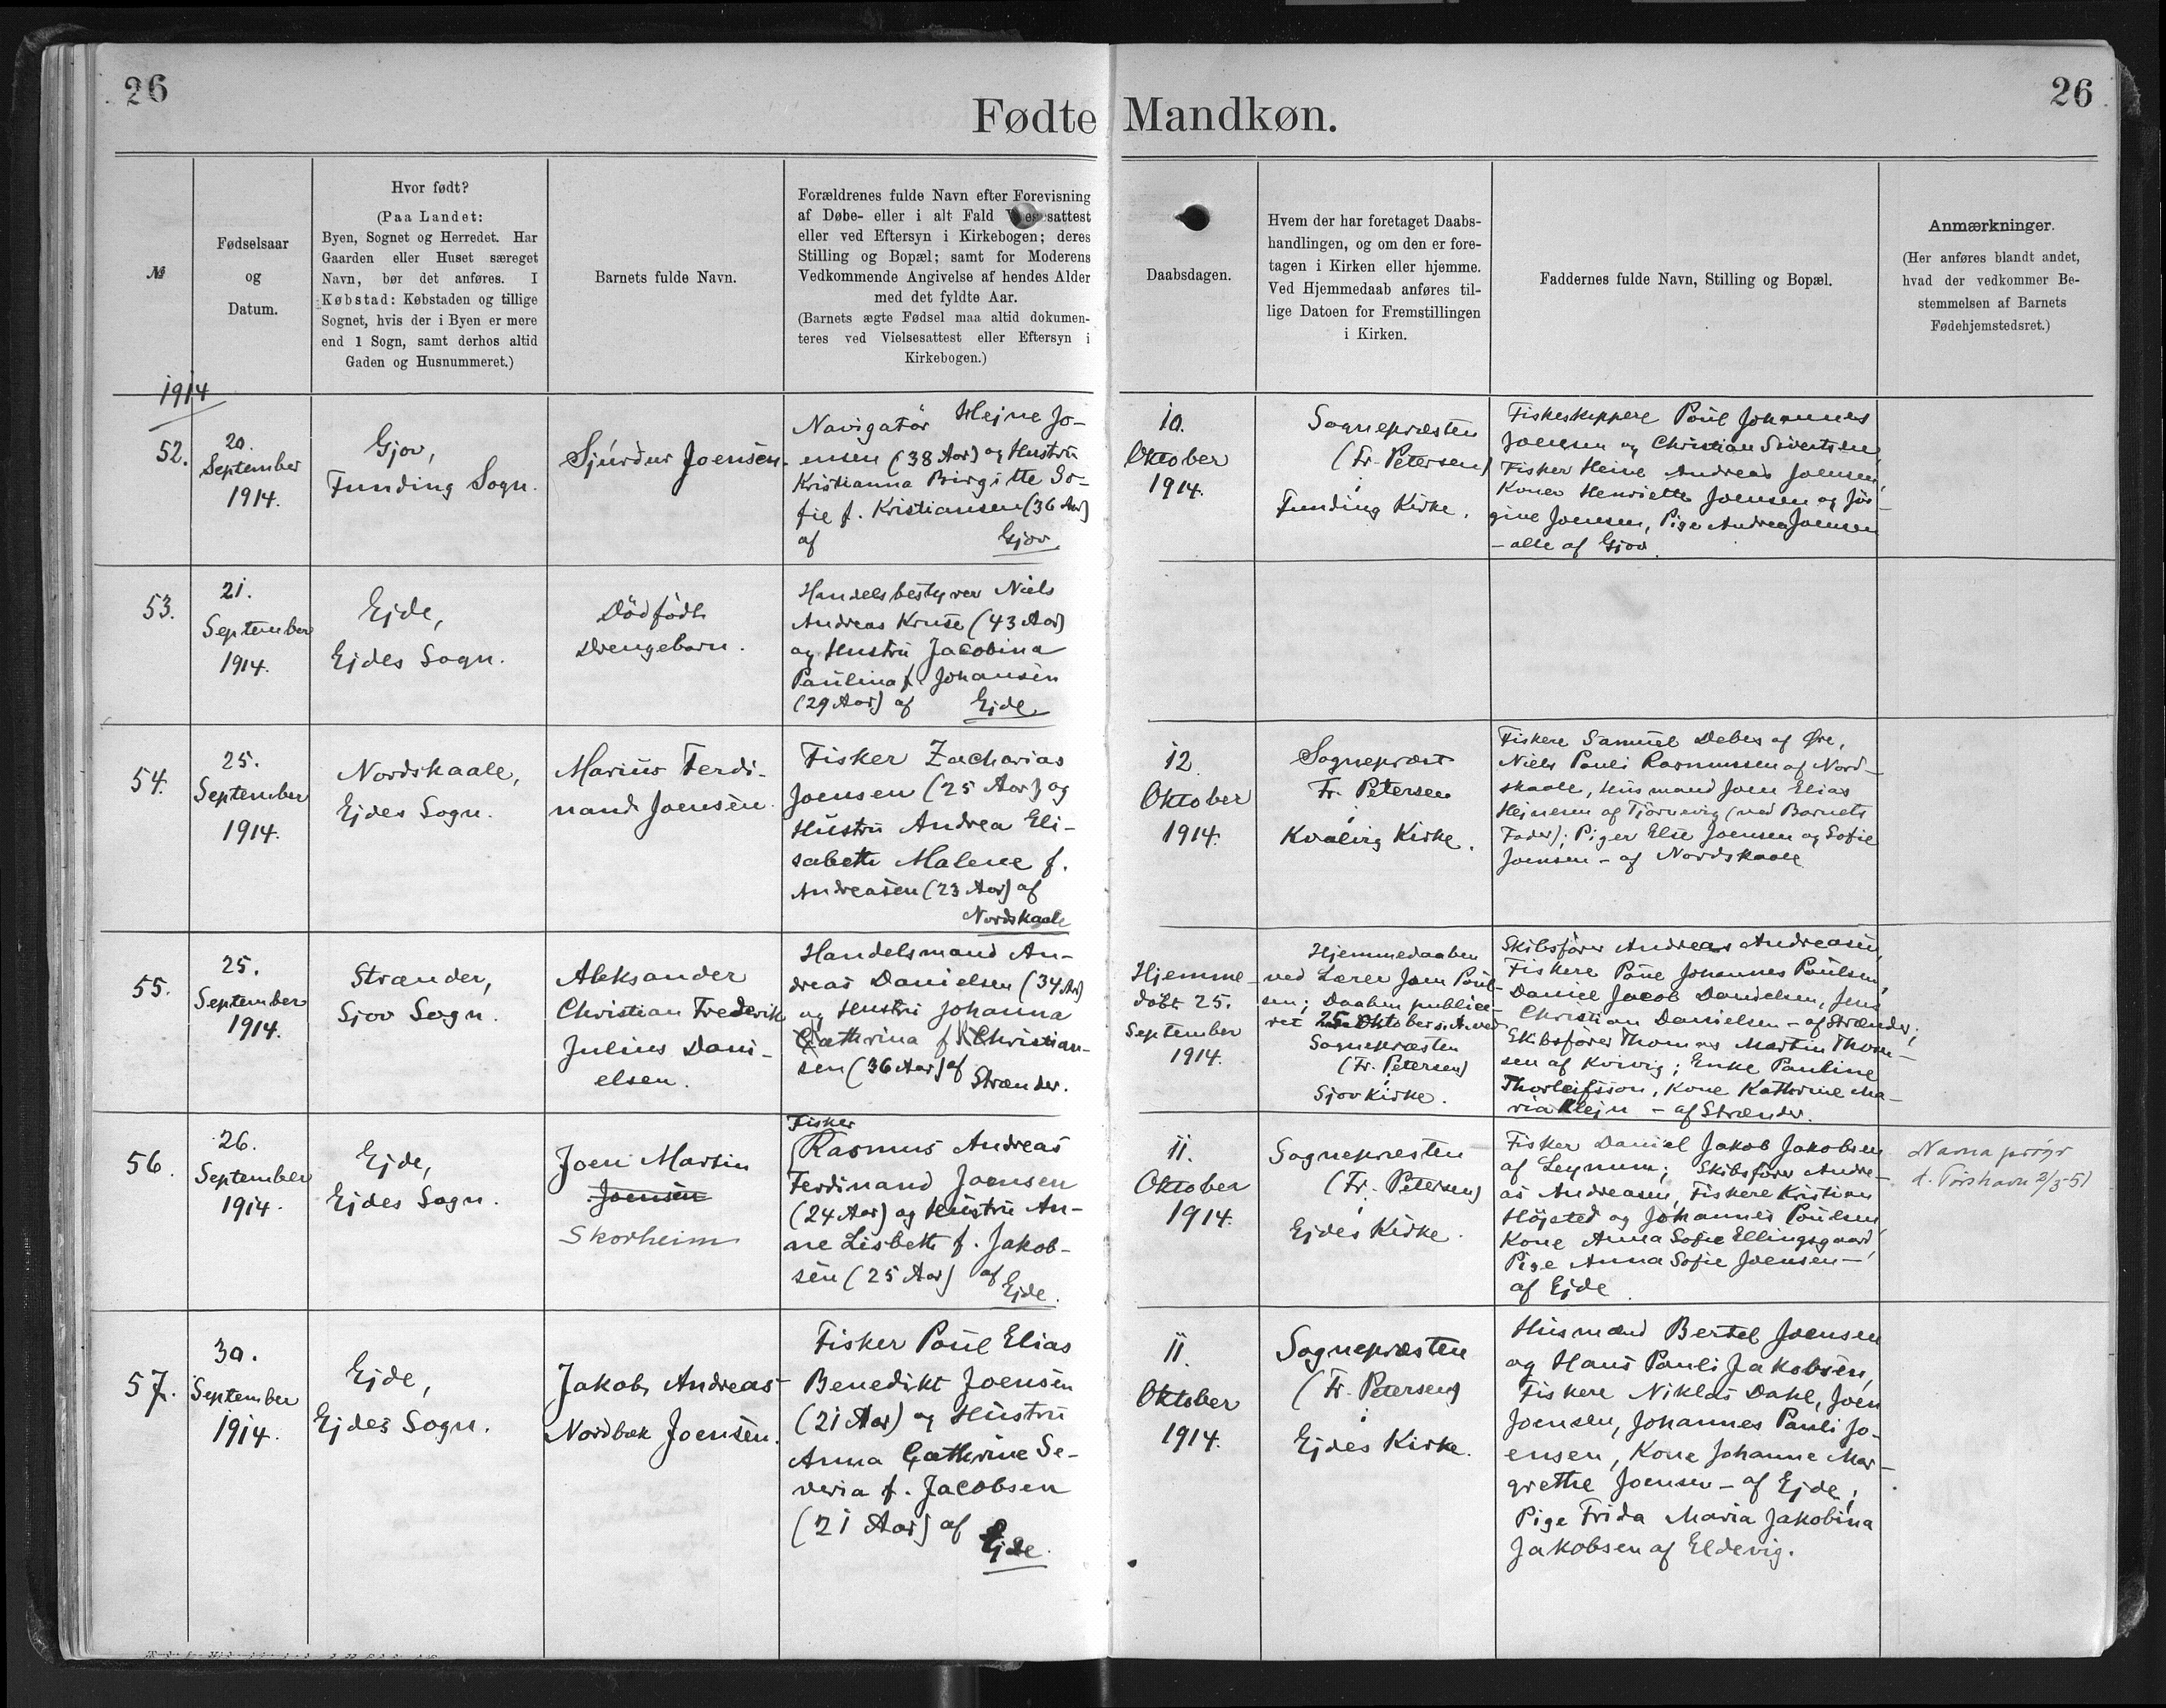 26
26
Fødte Mandkøn.
№
Fødselsaar
og
Datum.
Hvor født?
(Paa Landet:
Byen, Sognet og Herredet. Har
Gaarden eller Huset særeget
Navn, bør det anføres. I
Købstad: Købstaden og tillige
Sognet, hvis der i Byen er mere
end 1 Sogn, samt derhos altid
Gaden og Husnummeret.)
Barnets fulde Navn.
Forældrenes fulde Navn efter Forevisning
af Døbe- eller i alt Fald Vielsesattest
eller ved Eftersyn i Kirkebogen; deres
Stilling og Bopæl; samt for Moderens
Vedkommende Angivelse af hendes Alder
med det fyldte Aar.
(Barnets ægte Fødsel maa altid dokumen-
teres ved Vielsesattest eller Eftersyn i
Kirkebogen.)
Daabsdagen.
Hvem der har foretaget Daabs-
handlingen, og om den er fore-
tagen i Kirken eller hjemme.
Ved Hjemmedaab anføres til-
lige Datoen for Fremstillingen
i Kirken.
Faddernes fulde Navn, Stilling og Bopæl.
Anmærkninger.
(Her anføres blandt andet,
hvad der vedkommer Be-
stemmelsen af Barnets
Fødehjemstedsret.)
1914
52.
20.
September
1914.
Gjov,
Funding Sogn.
Sjúrdur Joensen.
Navigatör Hejne Jo-
ensen (38 Aar) og Hustru
Kristianna Birgitte So-
fie f. Kristiansen (36 Aar)
af Gjov.
10.
Oktober
1914.
Sognepræsten
(Fr. Petersen)
i
Funding Kirke.
Fiskeskippere Poul Johannes
Joensen og Christian Sivertsen,
Fisker Heine Andreas Joensen,
Koner Henriette Joensen og Jör-
gine Joensen, Pige Andrea Joensen
- alle af Gjov.
53.
21.
September
1914.
Ejde,
Ejdes Sogn.
Dödfödt
Drengebarn.
Handelsbestyrer Niels
Andreas Kruse (43 Aar)
og Hustru Jacobina
Paulina f. Johansen
(29 Aar) af Ejde.
54.
25.
September
1914.
Nordskaale,
Ejdes Sogn.
Marius Ferdi-
nand Joensen.
Fisker Zacharias
Joensen (25 Aar) og
Hustru Andrea Eli-
sabeth Malene f.
Andreasen (23 Aar) af
Nordskaale
12.
Oktober
1914.
Sognepræst
Fr. Petersen
i
Kvalvig Kirke.
Fiskere Samuel Debes af Øre,
Niels Pauli Rasmussen af Nord-
skaale, Husmand Joen Elias
Hejnesen af Tjörnevig (ved Barnets
Fader); Piger Else Joensen og Sofie
Joensen - af Nordskaale
55.
25.
September
1914.
Strænder,
Sjov Sogn.
Aleksander
Christian Frederik
Julius Dani-
elsen.
Handelsmand An-
dreas Danielsen (34 Aar)
og Hustru Johanna
Cathrina f. Christian-
sen (36 Aar) af Strænder.
Hjemme-
döbt 25.
September
1914.
Hjemmedaaben
ved Lærer Joen Poul-
sen; Daaben publice-
ret 25 Oktober s. A. ved
Sognepræsten
(Fr. Petersen)
i
Sjov Kirke.
Skibsförer Andreas Andreasen,
Fiskere Poul Johannes Poulsen,
Daniel Jacob Danielsen, Jens
Christian Danielsen - af Strænder;
Skibsförer Thomas Martin Thom-
sen af Kvivig; Enke Pauline
Thorleifsson, Kone Kathrine Ma-
ria Klejn - af Strænder.
56.
26.
September
1914.
Ejde,
Ejdes Sogn.
Joen Martin
Joensen
Skorheim
Fisker
Rasmus Andreas
Ferdinand Joensen
(24 Aar) og Hustru An-
ne Lisbeth f. Jakob-
sen (25 Aar) af Ejde.
11.
Oktober
1914.
Sognepræsten
(Fr. Petersen)
i
Ejdes Kirke.
Fisker Daniel Jakob Jakobsen
af Leynum; Skibsförer Andre-
as Andreasen, Fiskere Kristian
Höjsted og Johannes Poulsen,
Kone Anna Sofie Ellingsgaard,
Pige Anna Sofie Joensen -
af Ejde.
d. Tórshavn 2/5-51
57.
30.
September
1914.
Ejde,
Ejdes Sogn.
Jakob Andreas
Nordbæk Joensen.
Fisker Poul Elias
Benedikt Joensen
(21 Aar) og Hustru
Anna Cathrine Se-
veria f. Jacobsen
(21 Aar) af Ejde.
11.
Oktober
1914.
Sognepræsten
(Fr. Petersen)
i
Ejdes Kirke.
Husmænd Bertel Joensen
og Hans Pauli Jakobsen,
Fiskere Niklas Dahl, Joen
Joensen, Johannes Pauli Jo-
ensen, Kone Johanne Mar-
grethe Joensen - af Ejde;
Pige Frida Maria Jakobina
Jakobsen af Eldevig.